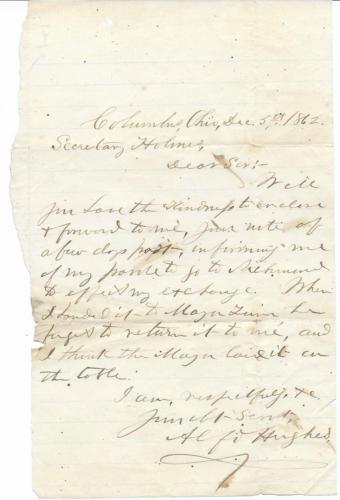 Columbus, Ohio, Dec. 5th, 1862.
Secretary Holmes,
Dear Sir:-
Will
you have the kindness to enclose
& forward to me, your note of
a few days past, informing me
of my parole to go to Richmond
to effect my exchange. When
I handed it to Major Zinn he
forgot to return it to me, and
I think the Major laid it on
the table.
I am, respectfully &c
Your Obt. Servt,
Hughes